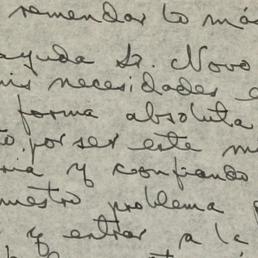 remendar lo más
ayuda Sr. Novo
mis necesidades
forma absoluta
to. por ser este
ria y confiando
nuestro problema
y entrar a la